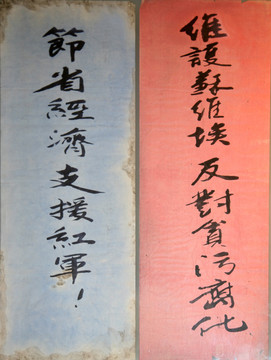 維護蘇維埃 反對貪污腐化
節省經濟支援紅軍！